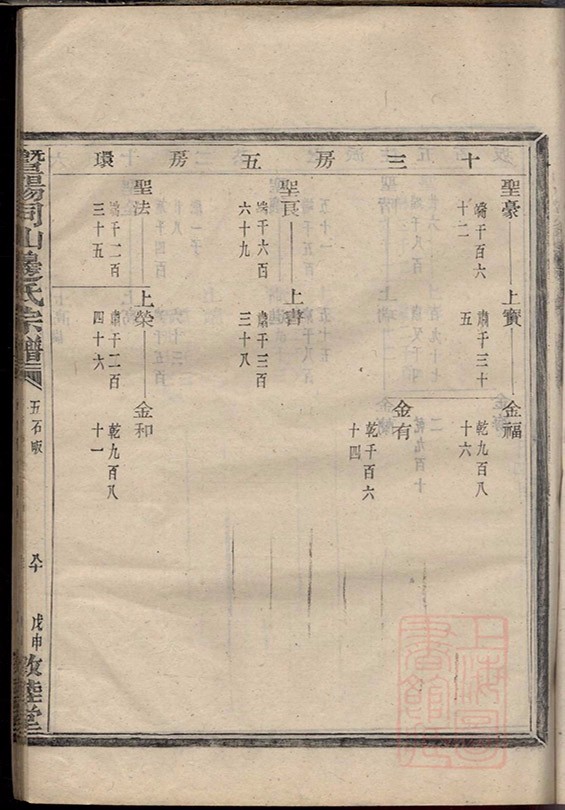 十三房五房環
聖豪
端千百六
十二
上實
肅千三十
五
金福
乾九百八
十六
金有
乾千百六
十四
聖良
端千六百
六十九
上書
肅千三百
三十八
聖法
端千二百
三十五
上榮
肅千二百
四十六
金和
乾九百八
十一
暨陽同山邊氏宗譜
五石畈
戊申
敦睦堂
上海圖書館藏